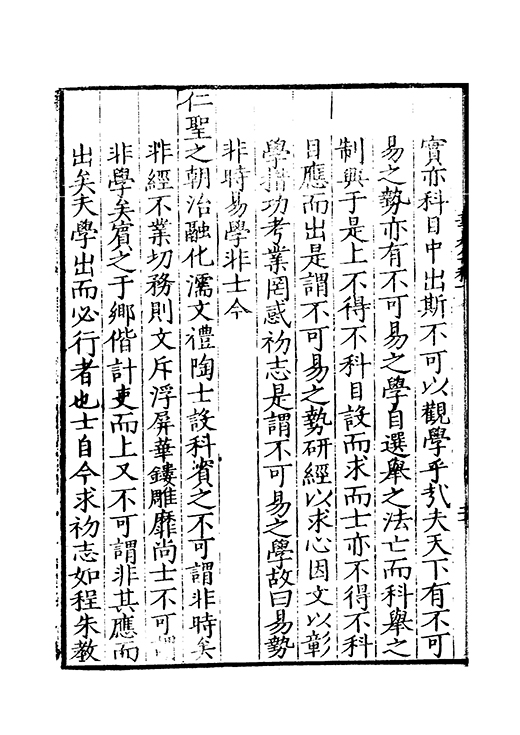 實亦科目中出斯不可以觀學乎哉夫天下有不可
易之勢亦有不可易之學自選舉之法亡而科舉之
制興于是上不得不科目設而求而士亦不得不科
目應而出是謂不可易之勢研經以求心因文以彰
學指功考業罔惑初志是謂不可易之學故曰易勢
非時易學非士今
仁聖之朝治融化濡文禮陶士設科賓之不可謂非時矣
非經不業切務則文斥浮屏華鏤雕靡尚士不可謂
非學矣賓之于鄉偕計吏而上又不可謂非其應而
出矣夫學出而必行者也士自今求初志如程朱教